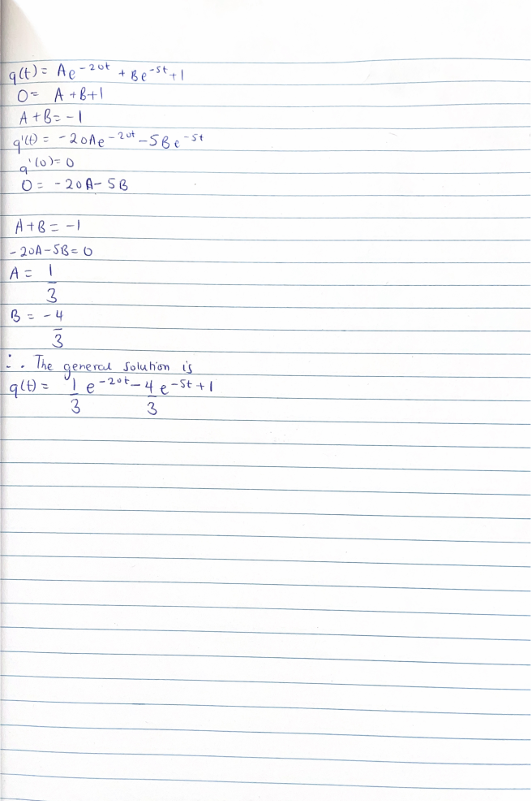 q(t) = Ae^-20t + Be^-5t + 1
0 = A + B + 1
A + B = -1
q'(t) = -20Ae^-20t - 5Be^-5t
q'(0) = 0
0 = -20A - 5B
A + B = -1
-20A - 5B = 0
A = 1/3
B = -4/3
∴ The general solution is
q(t) = 1/3 e^-20t - 4/3 e^-5t + 1